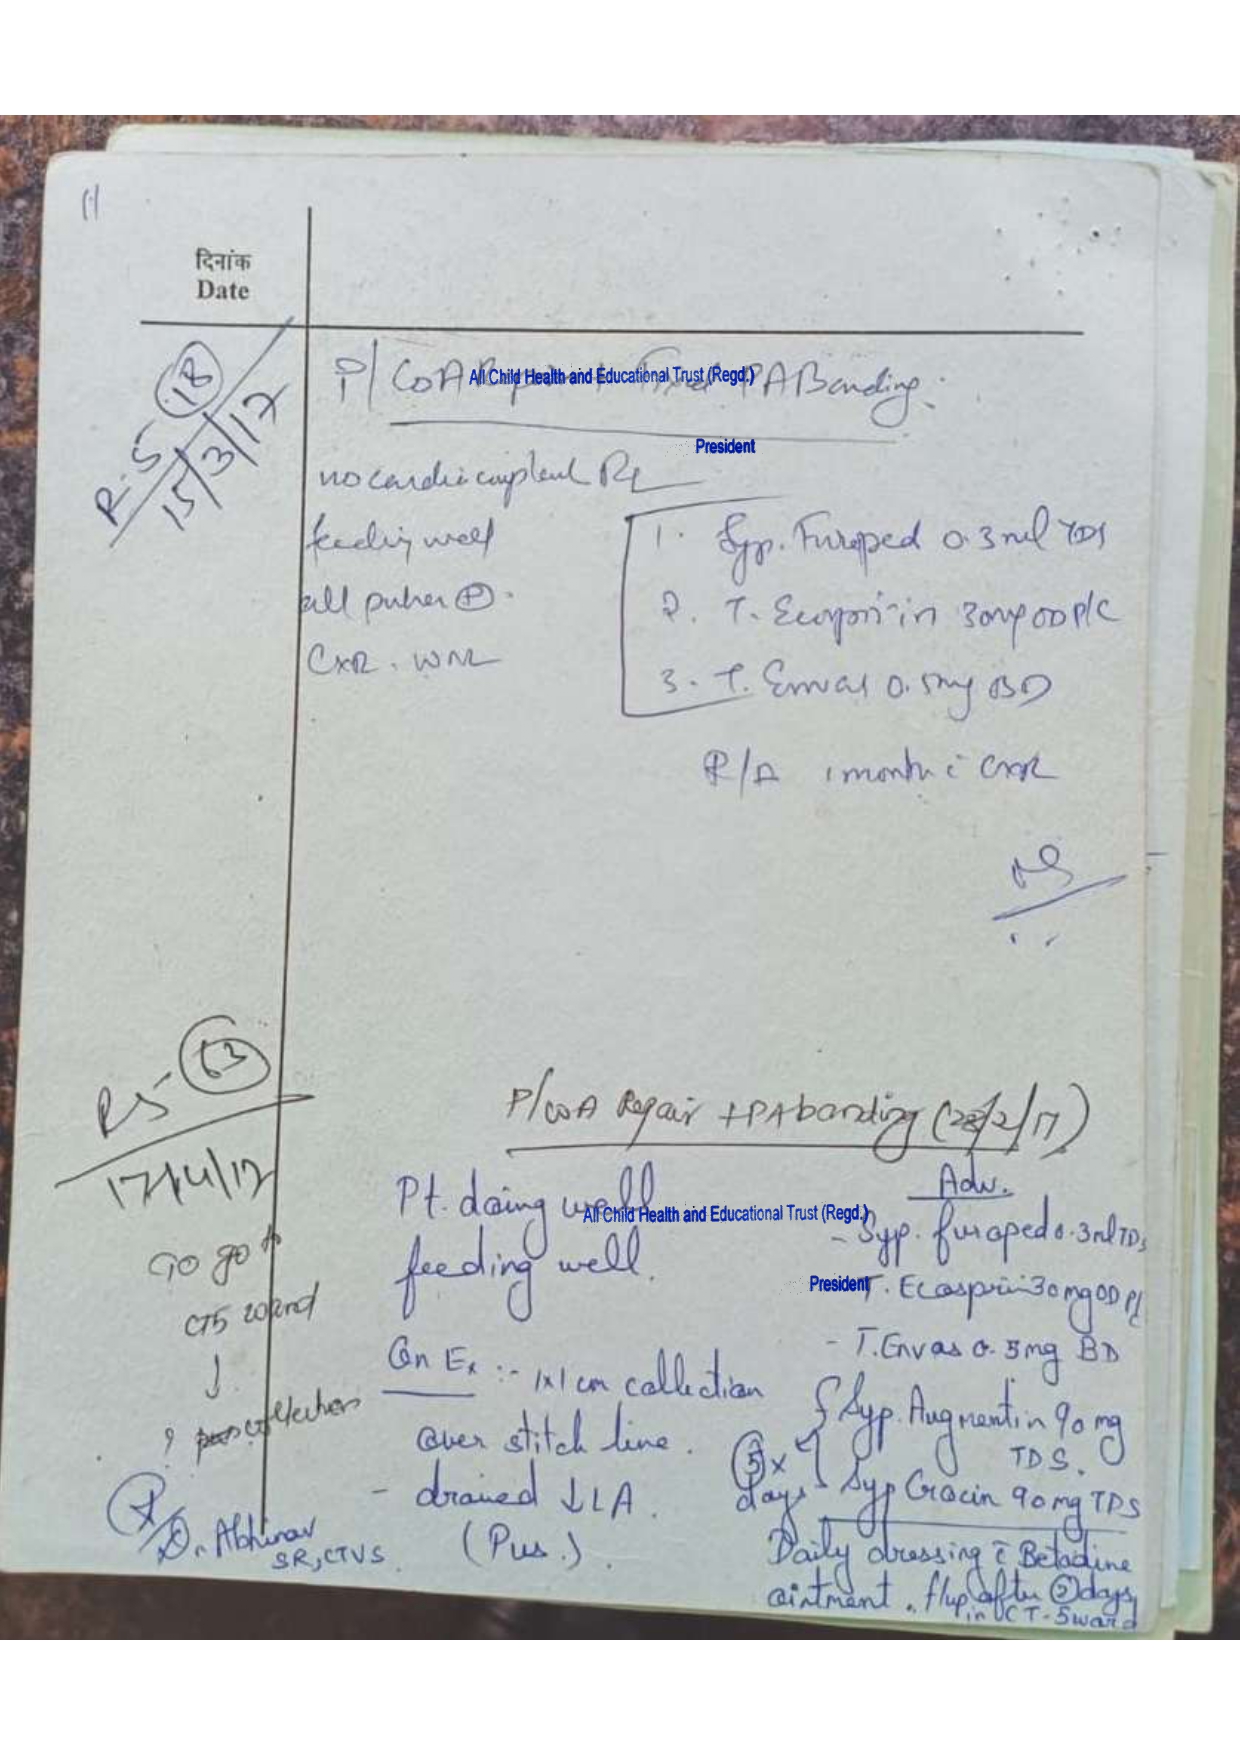 दिनांक
Date
R-5 18
15/3/17
P/ CoA Repair + PA Banding.
All Child Health and Educational Trust (Regd.)
President
no cardiac complaint
feeding well
all pulses ⊕.
CXR. WNL
Rx
1. Syp. Furoped 0.3ml TDS
2. T. Ecosprin 30mg OD P/C
3. T. Envas 0.5mg BD
R/A 1 month c̄ CXR
R5 63
17/4/17
To go to
CT5 ward
↓
? pus collection
P/CoA Repair + PA banding (28/2/17)
Pt. doing well
feeding well.
All Child Health and Educational Trust (Regd.)
President
On Ex :- 1x1 cm collection
over stitch line.
- drained ↓ LA.
(Pus.)
Dr. Abhinav
SR, CTVS
Adv.
- Syp. furoped 0.3ml TDS
T. Ecosprin 30mg OD P/C
- T. Envas 0.5mg BD
Syp. Augmentin 90 mg
TDS.
5 x days
Syp Crocin 90mg TDS
Daily dressing c̄ Betadine
ointment. f/up after 5 days
in CT-5 ward